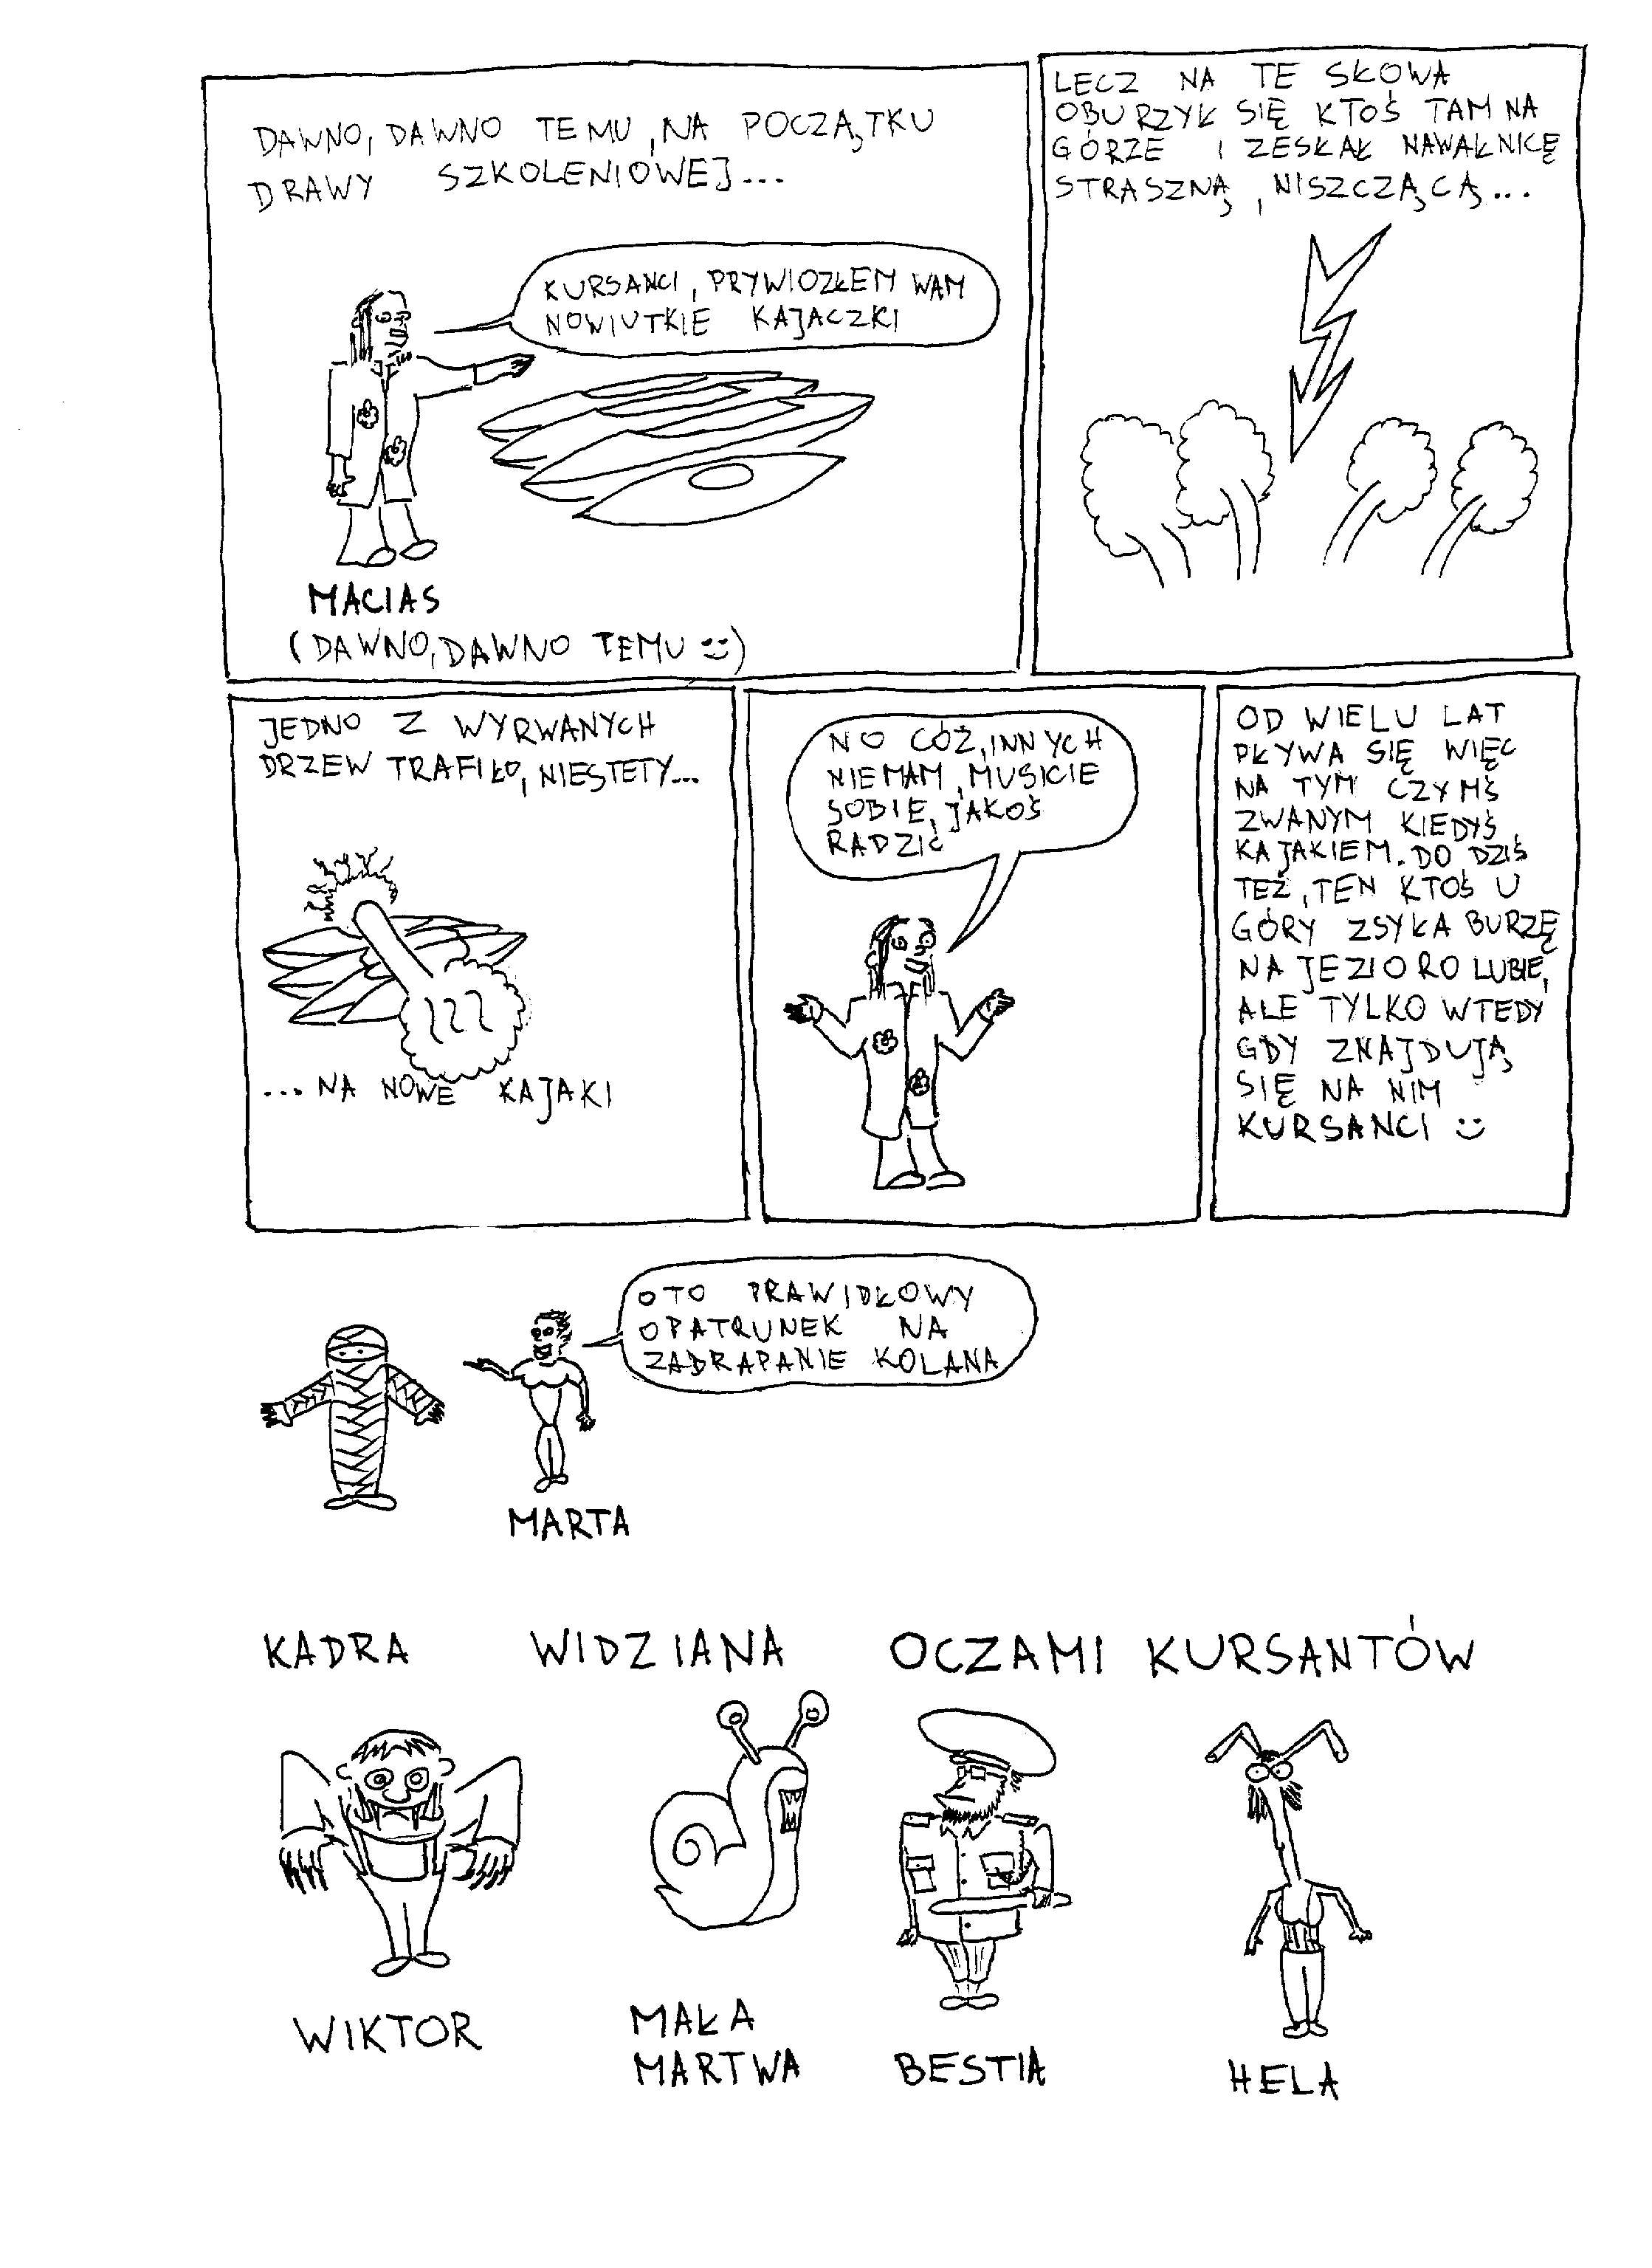 DAWNO, DAWNO TEMU, NA POCZĄTKU
DRAWY SZKOLENIOWEJ...
KURSANCI, PRYWIOZŁEM WAM
NOWIUTKIE KAJACZKI
MACIAS
(DAWNO, DAWNO TEMU)
LECZ NA TE SŁOWA
OBURZYŁ SIĘ KTOŚ TAM NA
GÓRZE I ZESŁAŁ NAWAŁNICĘ
STRASZNĄ, NISZCZĄCĄ...
JEDNO Z WYRWANYCH
DRZEW TRAFIŁO, NIESTETY...
...NA NOWE KAJAKI
NO CÓŻ, INNYCH
NIE MAM, MUSICIE
SOBIE, JAKOŚ
RADZIĆ
OD WIELU LAT
PŁYWA SIĘ WIĘC
NA TYM CZYMŚ
ZWANYM KIEDYŚ
KAJAKIEM. DO DZIŚ
TEŻ, TEN KTOŚ U
GÓRY ZSYŁA BURZĘ
NA JEZIORO LUBIE,
ALE TYLKO WTEDY
GDY ZNAJDUJĄ
SIĘ NA NIM
KURSANCI
OTO PRAWIDŁOWY
OPATRUNEK NA
ZADRAPANIE KOLANA
MARTA
KADRA WIDZIANA OCZAMI KURSANTÓW
WIKTOR
MAŁA
MARTWA
BESTIA
HELA